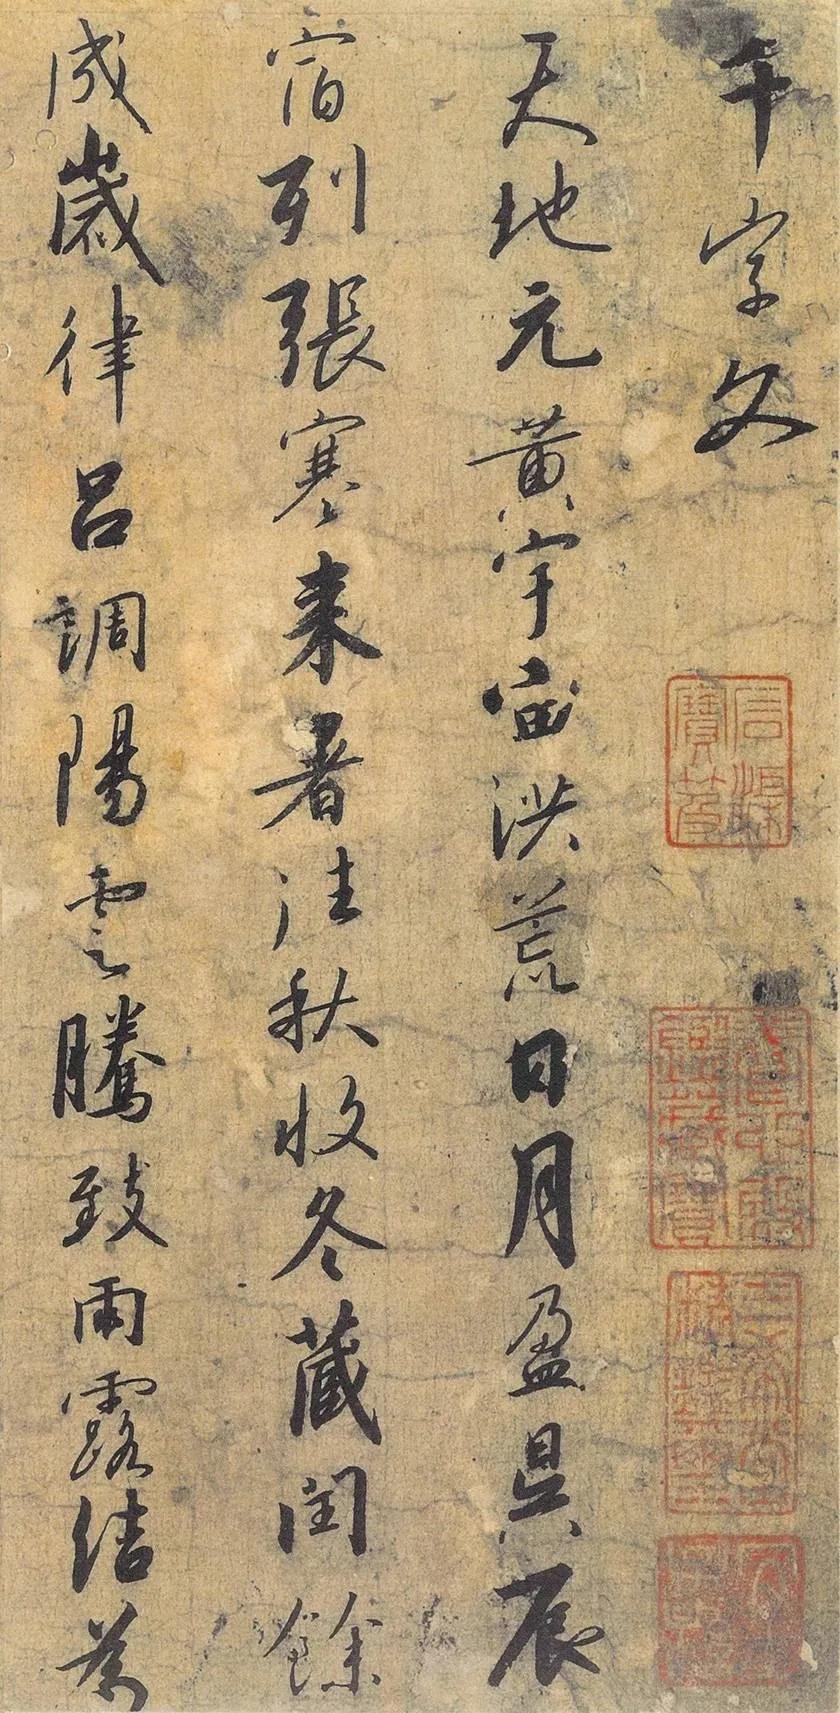 千字文
天地元黄宇宙洪荒日月盈昃辰
宿列張寒来暑往秋收冬藏閏餘
成歲律吕調陽雲騰致雨露結為